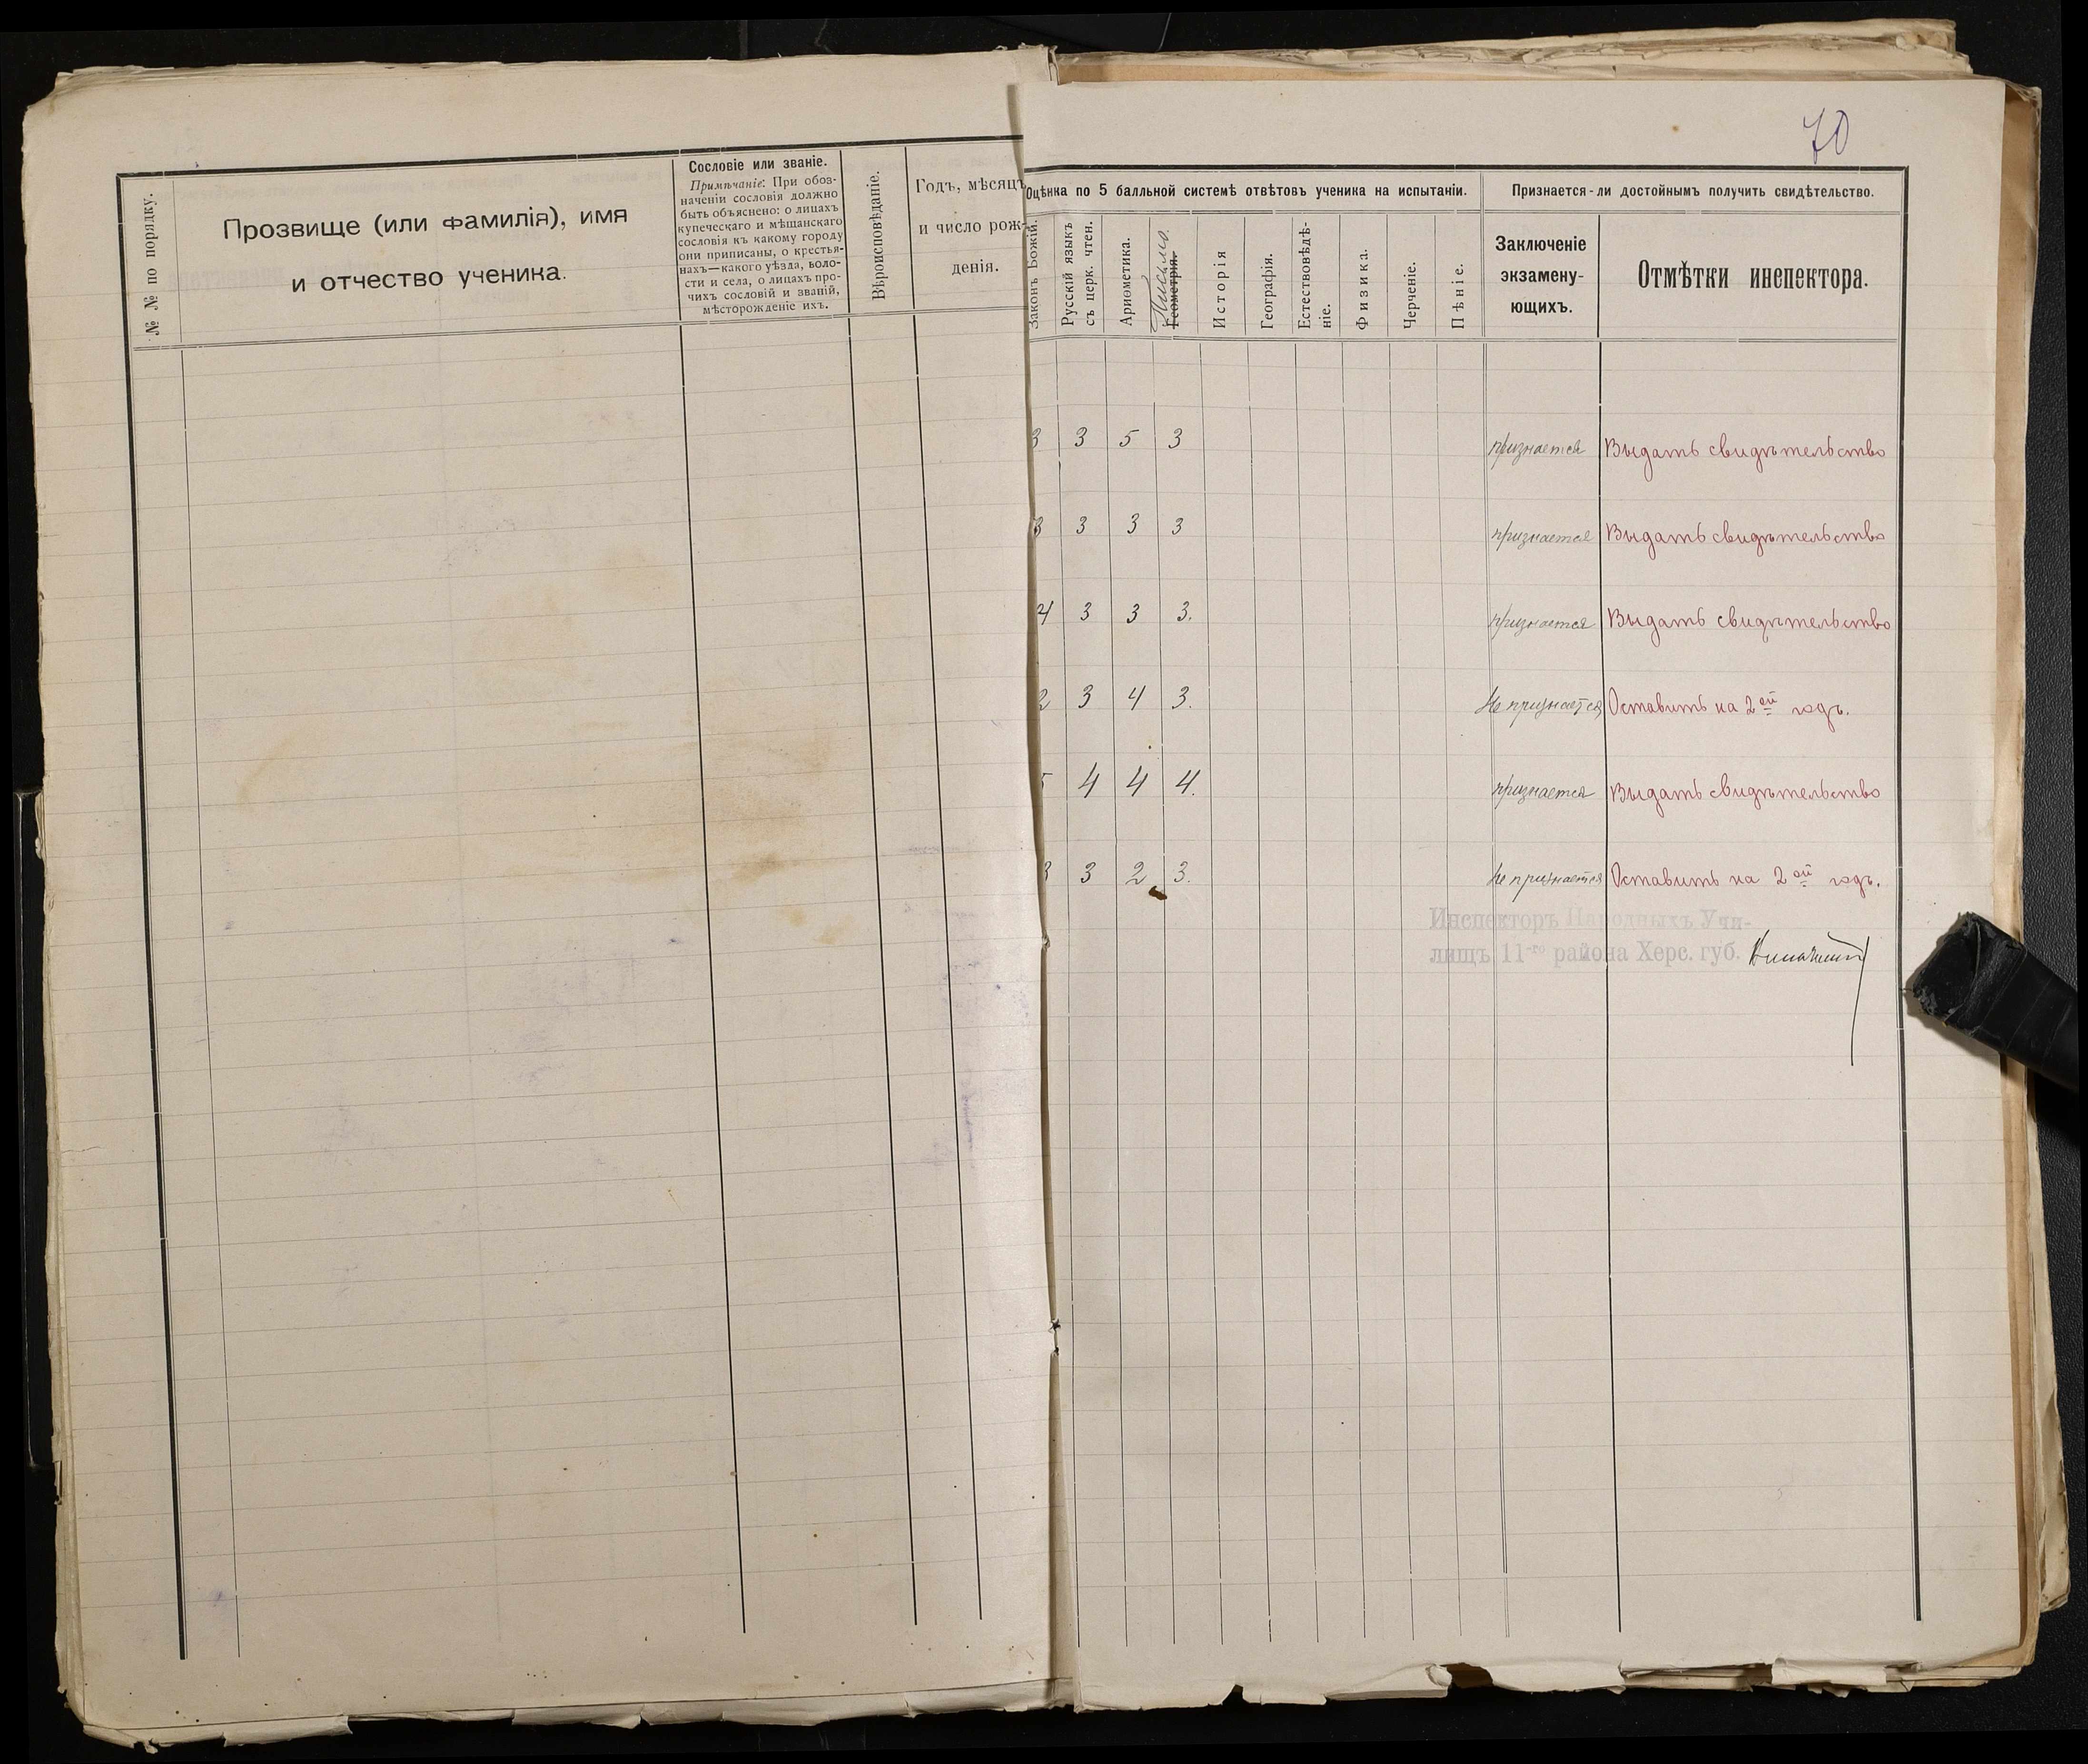 70
№ № по порядку.
Прозвище (или фамилія), имя
и отчество ученика.
Сословіе или званіе.
Примѣчаніе: При обоз-
наченіи сословія должно
быть объяснено: о лицахъ
купеческаго и мѣщанскаго
сословія къ какому городу
они приписаны, о крестья-
нахъ—какого уѣзда, воло-
сти и села, о лицахъ про-
чихъ сословій и званій,
мѣсторожденіе ихъ.
Вѣроисповѣданіе.
Годъ, мѣсяцъ
и число рож-
денія.
Оцѣнка по 5 балльной системѣ отвѣтовъ ученика на испытаніи.
Законъ Божій.
Русскій языкъ
съ церк. чтен.
Ариѳметика.
Письмо.
Геометрія.
Исторія
Географія.
Естествовѣдѣ-
ніе.
Физика.
Черченіе.
Пѣніе.
Признается-ли достойнымъ получить свидѣтельство.
Заключеніе
экзамену-
ющихъ.
Отмѣтки инспектора.
3 3 5 3 признается Выдать свидѣтельство
3 3 3 3 признается Выдать свидѣтельство
4 3 3 3. признается Выдать свидѣтельство
2 3 4 3. Не признается Оставить на 2ой годъ.
5 4 4 4. признается Выдать свидѣтельство
3 3 2 3. Не признается Оставить на 2ой годъ.
Инспекторъ Народныхъ Учи-
лищъ 11-го района Херс. губ.